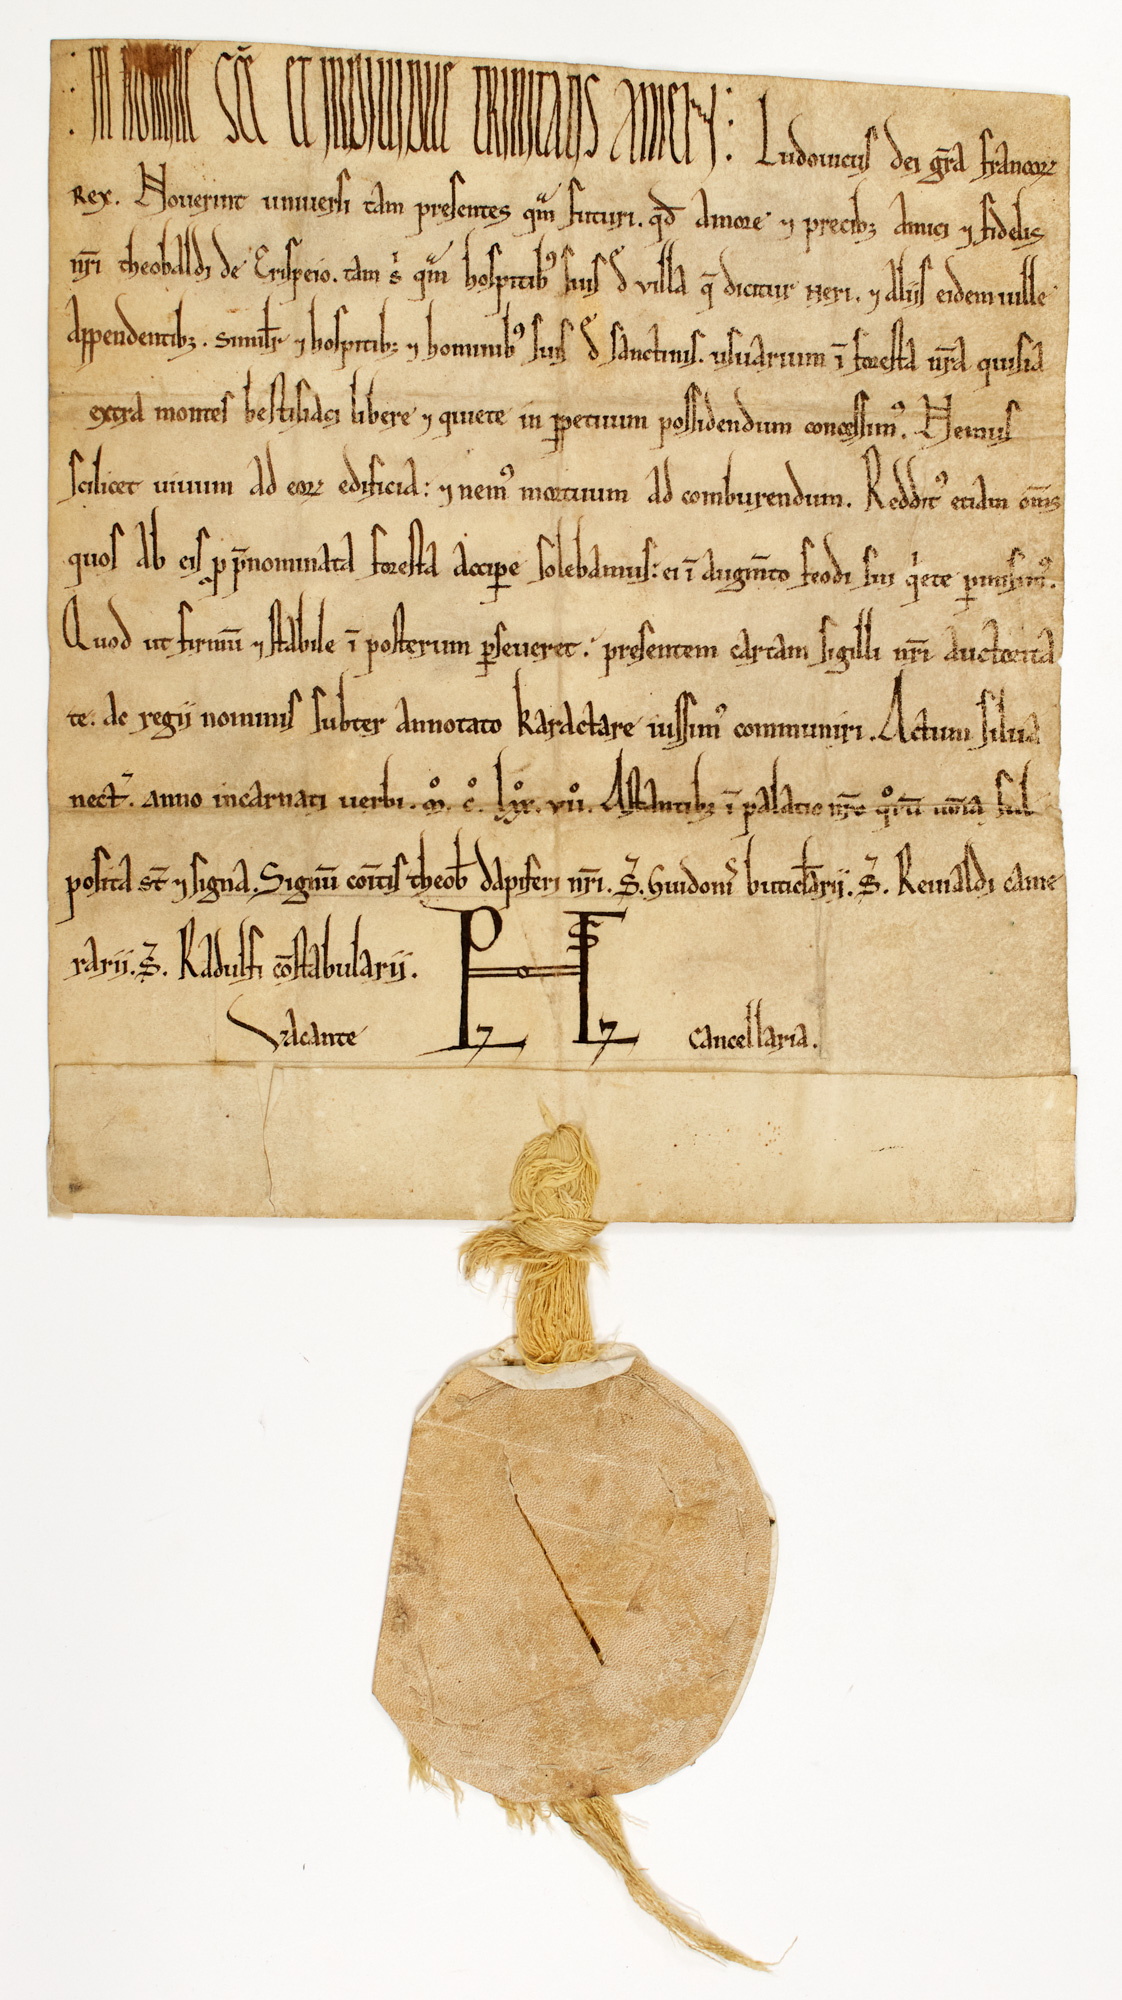 : IN NOMINE SCE ET INDIVIDUE TRINITATIS AMEN : Ludouicus dei gr̄a francoꝝ
Rex. Nouerint uniuersi tam presentes qm̄ futuri. qđ amore ⁊ precibꝫ amici ⁊ fidelis
nr̄i theobaldi de Crispeio. tam s̓ qm̄ hospitibꝰ suis đ villa q̄ dicitur Neri. ⁊ aliis eidem uille
appendentibꝫ. similr̄ ⁊ hospitibꝫ ⁊ hominibꝰ suis đ sanctinis. usuarium ī foresta nr̄a quisia
extra montes bestisiaci libere ⁊ quiete in ꝑpetuum possidendum concessimꝰ. Nemus
scilicet uiuum ad eoꝝ edificia : ⁊ nemꝰ mortuum ad comburendum. Redditꝰ etiam om̄s
quos ab eis ꝓ p̄nominata foresta acciꝑe solebamus : ei ī augm̄to feodi sui qͥete ꝑmisimꝰ.
Quod ut firmū ⁊ stabile ī posterum ꝑseueret : presentem cartam sigilli nr̄i auctorita
te. ac regii nominis subter annotato karactare iussimꝰ communiri. Actum silua
nect̄. anno incarnati uerbi. mͦ. cͦ. lxͦx. vııͦ. Astantibꝫ ī palatio nr̄o qͦꝝ noīa sub
posita st̄ ⁊ signa. Signū com̄tis theob̄ dapiferi nr̄i. S̄. Guidonis buticlarii. S̄. Reinaldi came
rarii. S̄. Radulfi cōstabularii.
Vacante cancellaria.